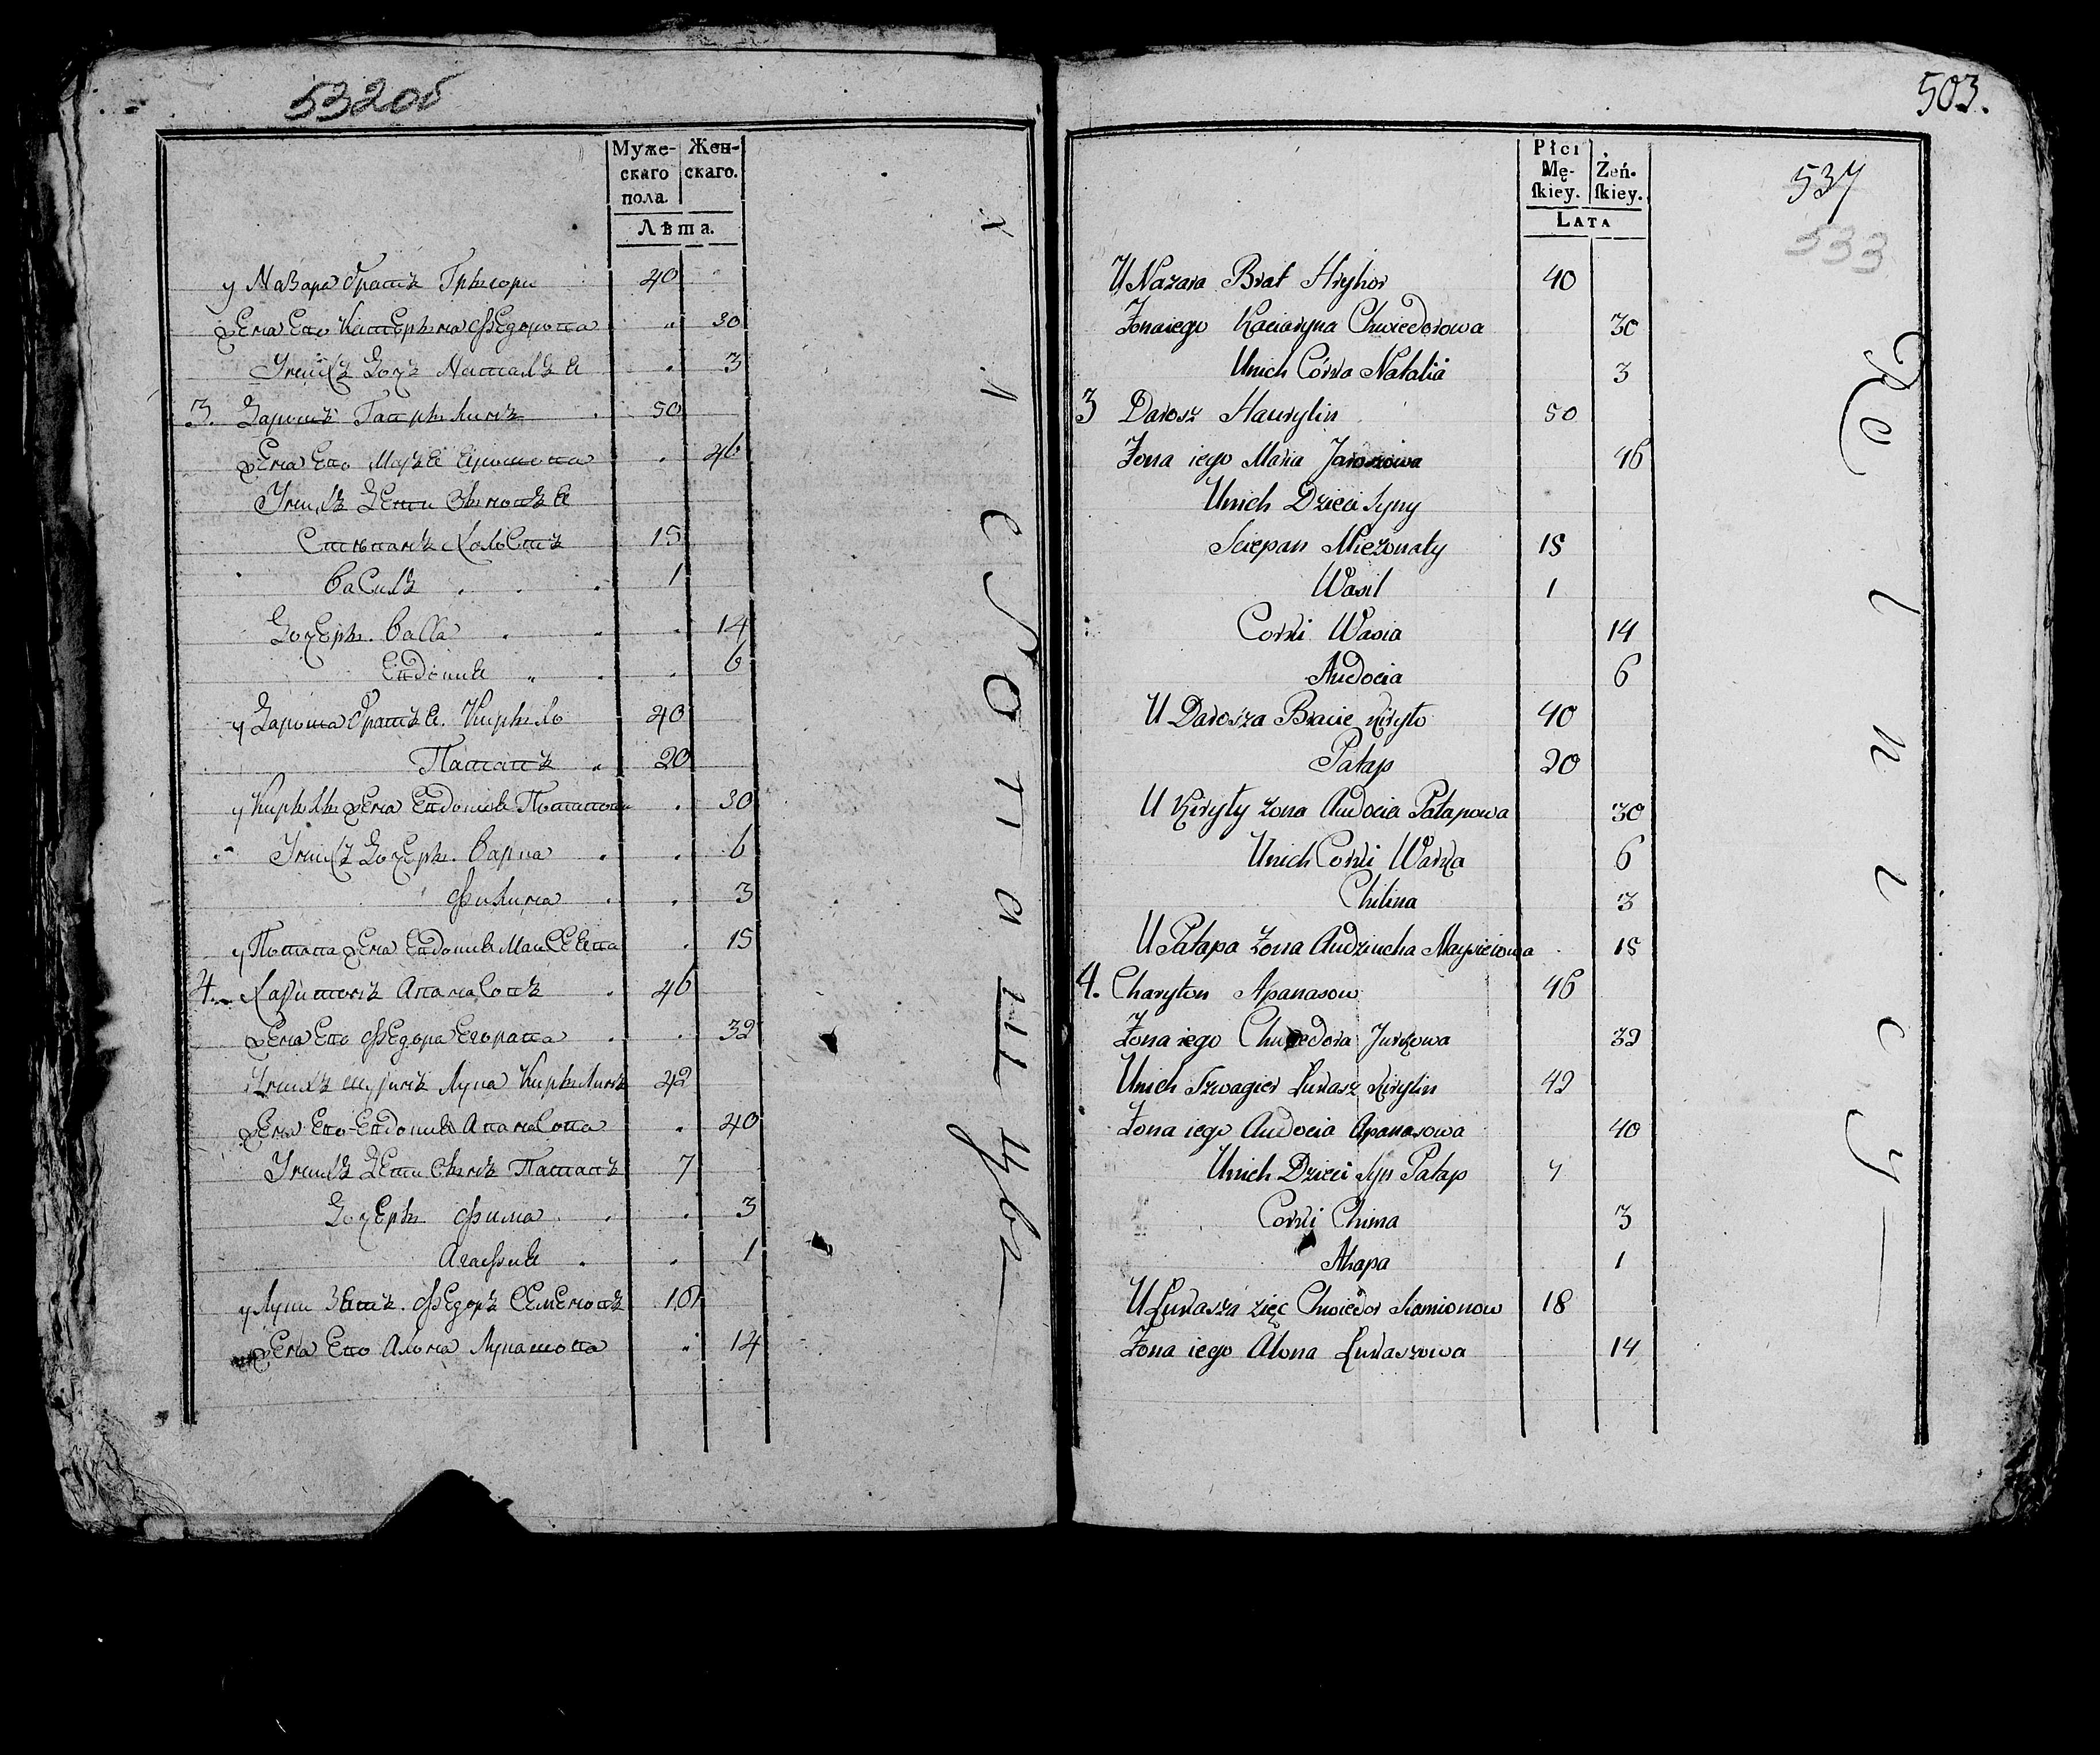 532об
Муже-
скаго
пола.
Жен-
скаго.
Лѣта.
у Назара братъ Грыгоры 40
Жена Его Катерына Федорова 30
У нихъ Дочь Наталья 3
3. Дарошъ Гаврылинъ 50
Жена Его Марья 46
У нихъ Дети Сыновья
Степанъ Холостъ 15
Василь 1
Дочеры. Васса 14
Евдокия 6
у Дароша братья. Кирыло 40
Патапъ 20
у Кирылы Жена Евдокия 30
У нихъ Дочеры. Варка 6
Филина 3
у Потапа Жена Евдокия 15
4. Харитонъ Апанасовъ 46
Жена Его Федора 32
У нихъ шуринъ Лука Кирылинъ 42
Жена Его Евдокия Апанасова 40
У нихъ Дети Сынъ Патапъ 7
Дочеры Фима 3
Агафия 1
у Луки Зять. Федоръ Семеновъ 18
Жена Его Алона Лукашова 14
503.
Płci
Mę-
ſkiey.
Żeń-
ſkiey.
Lata
537
533
U Nazara Brat Hryhor 40
Żona iego Kaciaryna Chwiedorowa 30
U nich Córka Natalia 3
3 Darosz Haurylin 50
Żona iego Maria Jaroszowa 46
U nich Dzieci Syny
Sciepan Nieżonaty 15
Wasil 1
Corki Wasia 14
Audocia 6
U Darosza Bracie Kiryło 40
Patap 20
U Kiryły żona Audocia Patapowa 30
U nich Corki Warka 6
Chilina 3
U Patapa Żona Audziucha 15
4. Charyton Apanasow 46
Żona iego Chwiedora Jurkowa 32
U nich Szwagier Łukasz Kirylin 42
Żona iego Audocia Apanasowa 40
U nich Dzieci Syn Patap 7
Corki Chima 3
Ahapa 1
U Łukasza zięć Chwiedor Siamionow 18
Żona iego Alona Łukaszowa 14
Rolnicy